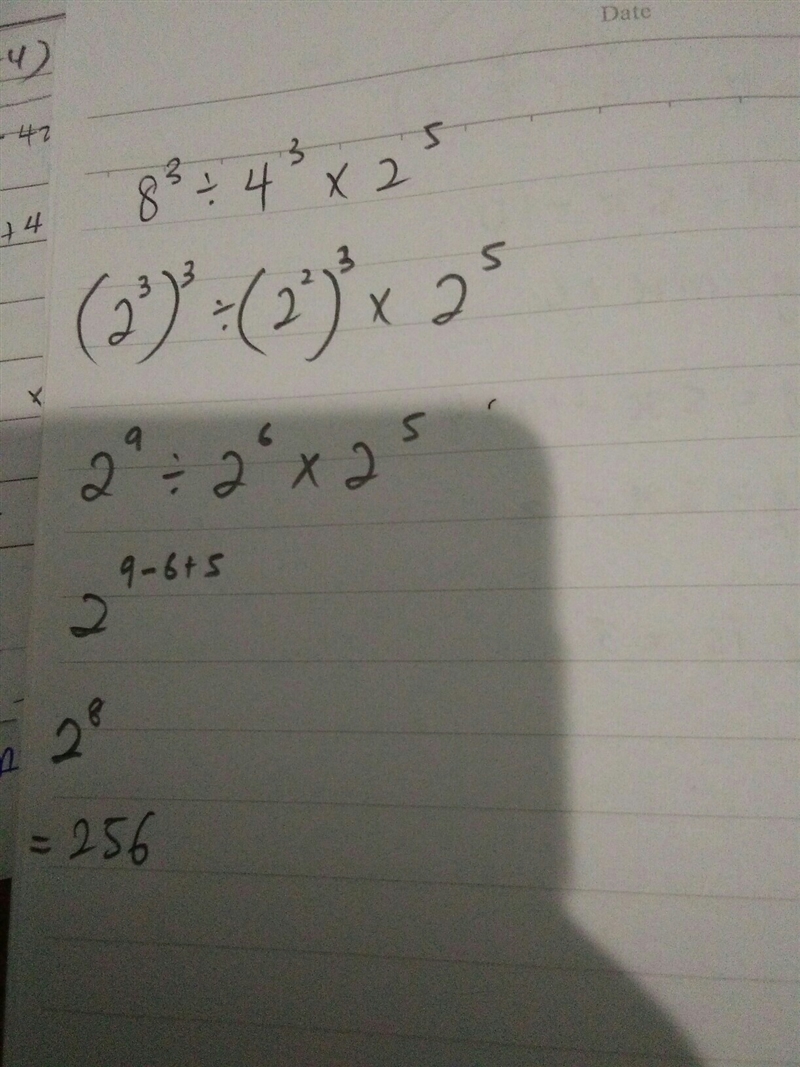 Date
4)
- 42
+4
x
8³ ÷ 4³ × 2⁵
(2³)³ ÷ (2²)³ × 2⁵
2⁹ ÷ 2⁶ × 2⁵
2⁹⁻⁶⁺⁵
2⁸
= 256